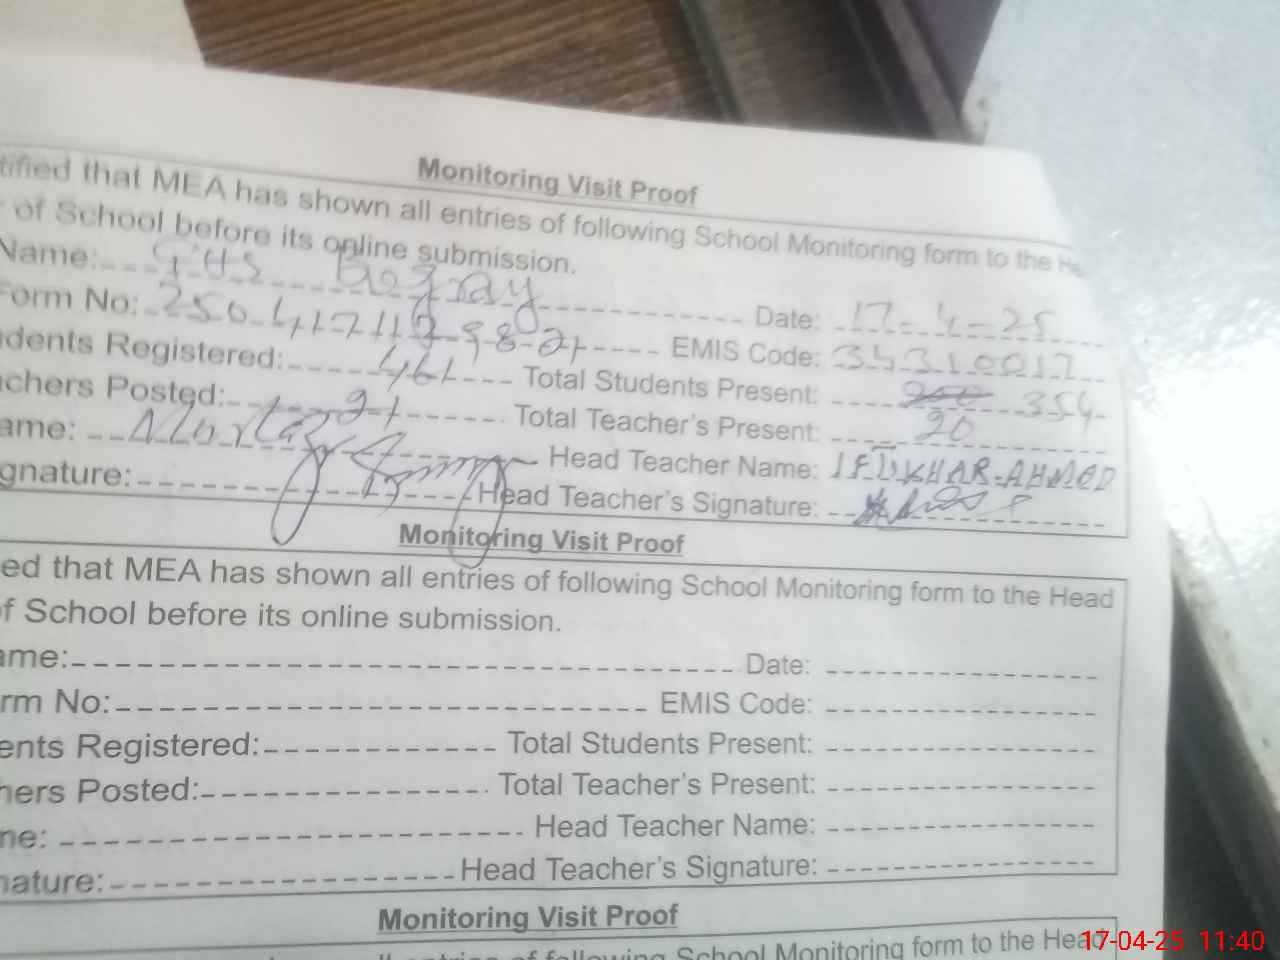 Monitoring Visit Proof
tified that MEA has shown all entries of following School Monitoring form to the He
of School before its online submission.
Name: GHS Date: 17-4-25
Form No: EMIS Code: 34310017
dents Registered: 461 Total Students Present: 354
achers Posted: 21 Total Teacher's Present: 20
ame: Head Teacher Name: IFTIKHAR-AHMED
gnature: Head Teacher's Signature:
Monitoring Visit Proof
ed that MEA has shown all entries of following School Monitoring form to the Head
of School before its online submission.
ame: Date:
rm No: EMIS Code:
ents Registered: Total Students Present:
hers Posted: Total Teacher's Present:
ne: Head Teacher Name:
nature: Head Teacher's Signature:
Monitoring Visit Proof
all entries of following School Monitoring form to the Head
17-04-25 11:40